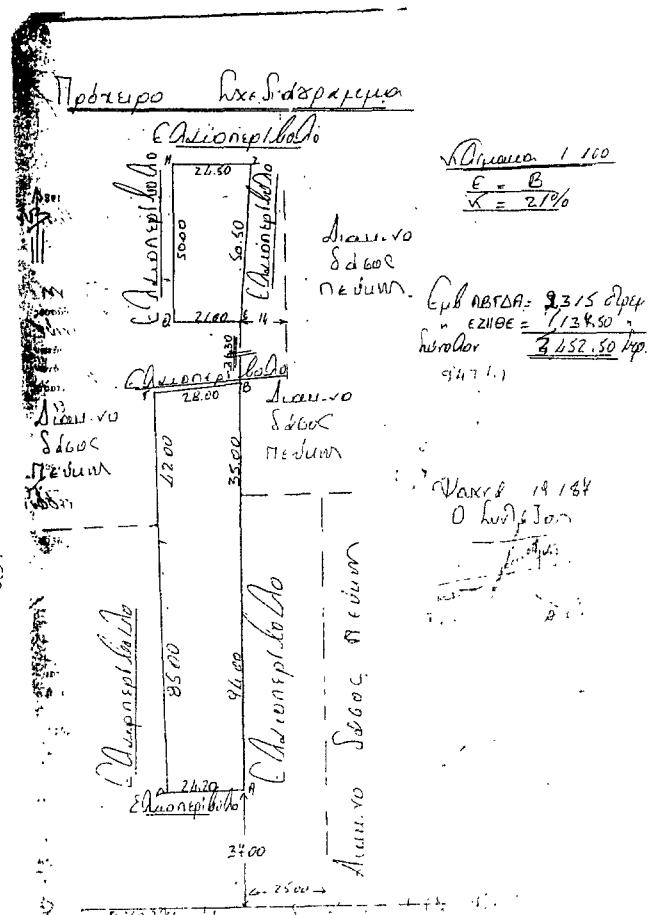 Πρόχειρο Σχεδιάγραμμα
Ελαιοπερίβολο
Κλίμακα 1 100
Ε = Β
Κ = 21%
Η Ζ
24.50
Ελαιοπερίβολο
50.00
50.50
Ελαιοπερίβολο
Διακ.νο
δάσος
πεύκων
Θ 21.00 Ε 14
Εμβ ΑΒΓΔΑ = 2315
" ΕΖΗΘΕ = 1,137.50 "
Σύνολον 3,452.50
34.30
Ελαιοπερίβολο
Γ 28.00 Β
Διακ.νο
δάσος
πεύκων
Διακ.νο
δάσος
πεύκων
42.00
35.00
Ψαχνά 19 187
Ο
Ελαιοπερίβολο
85.00
94.00
Ελαιοπερίβολο
Διακ.νο δάσος πεύκων
Δ 24.20 Α
Ελαιοπερίβολο
37.00
25.00